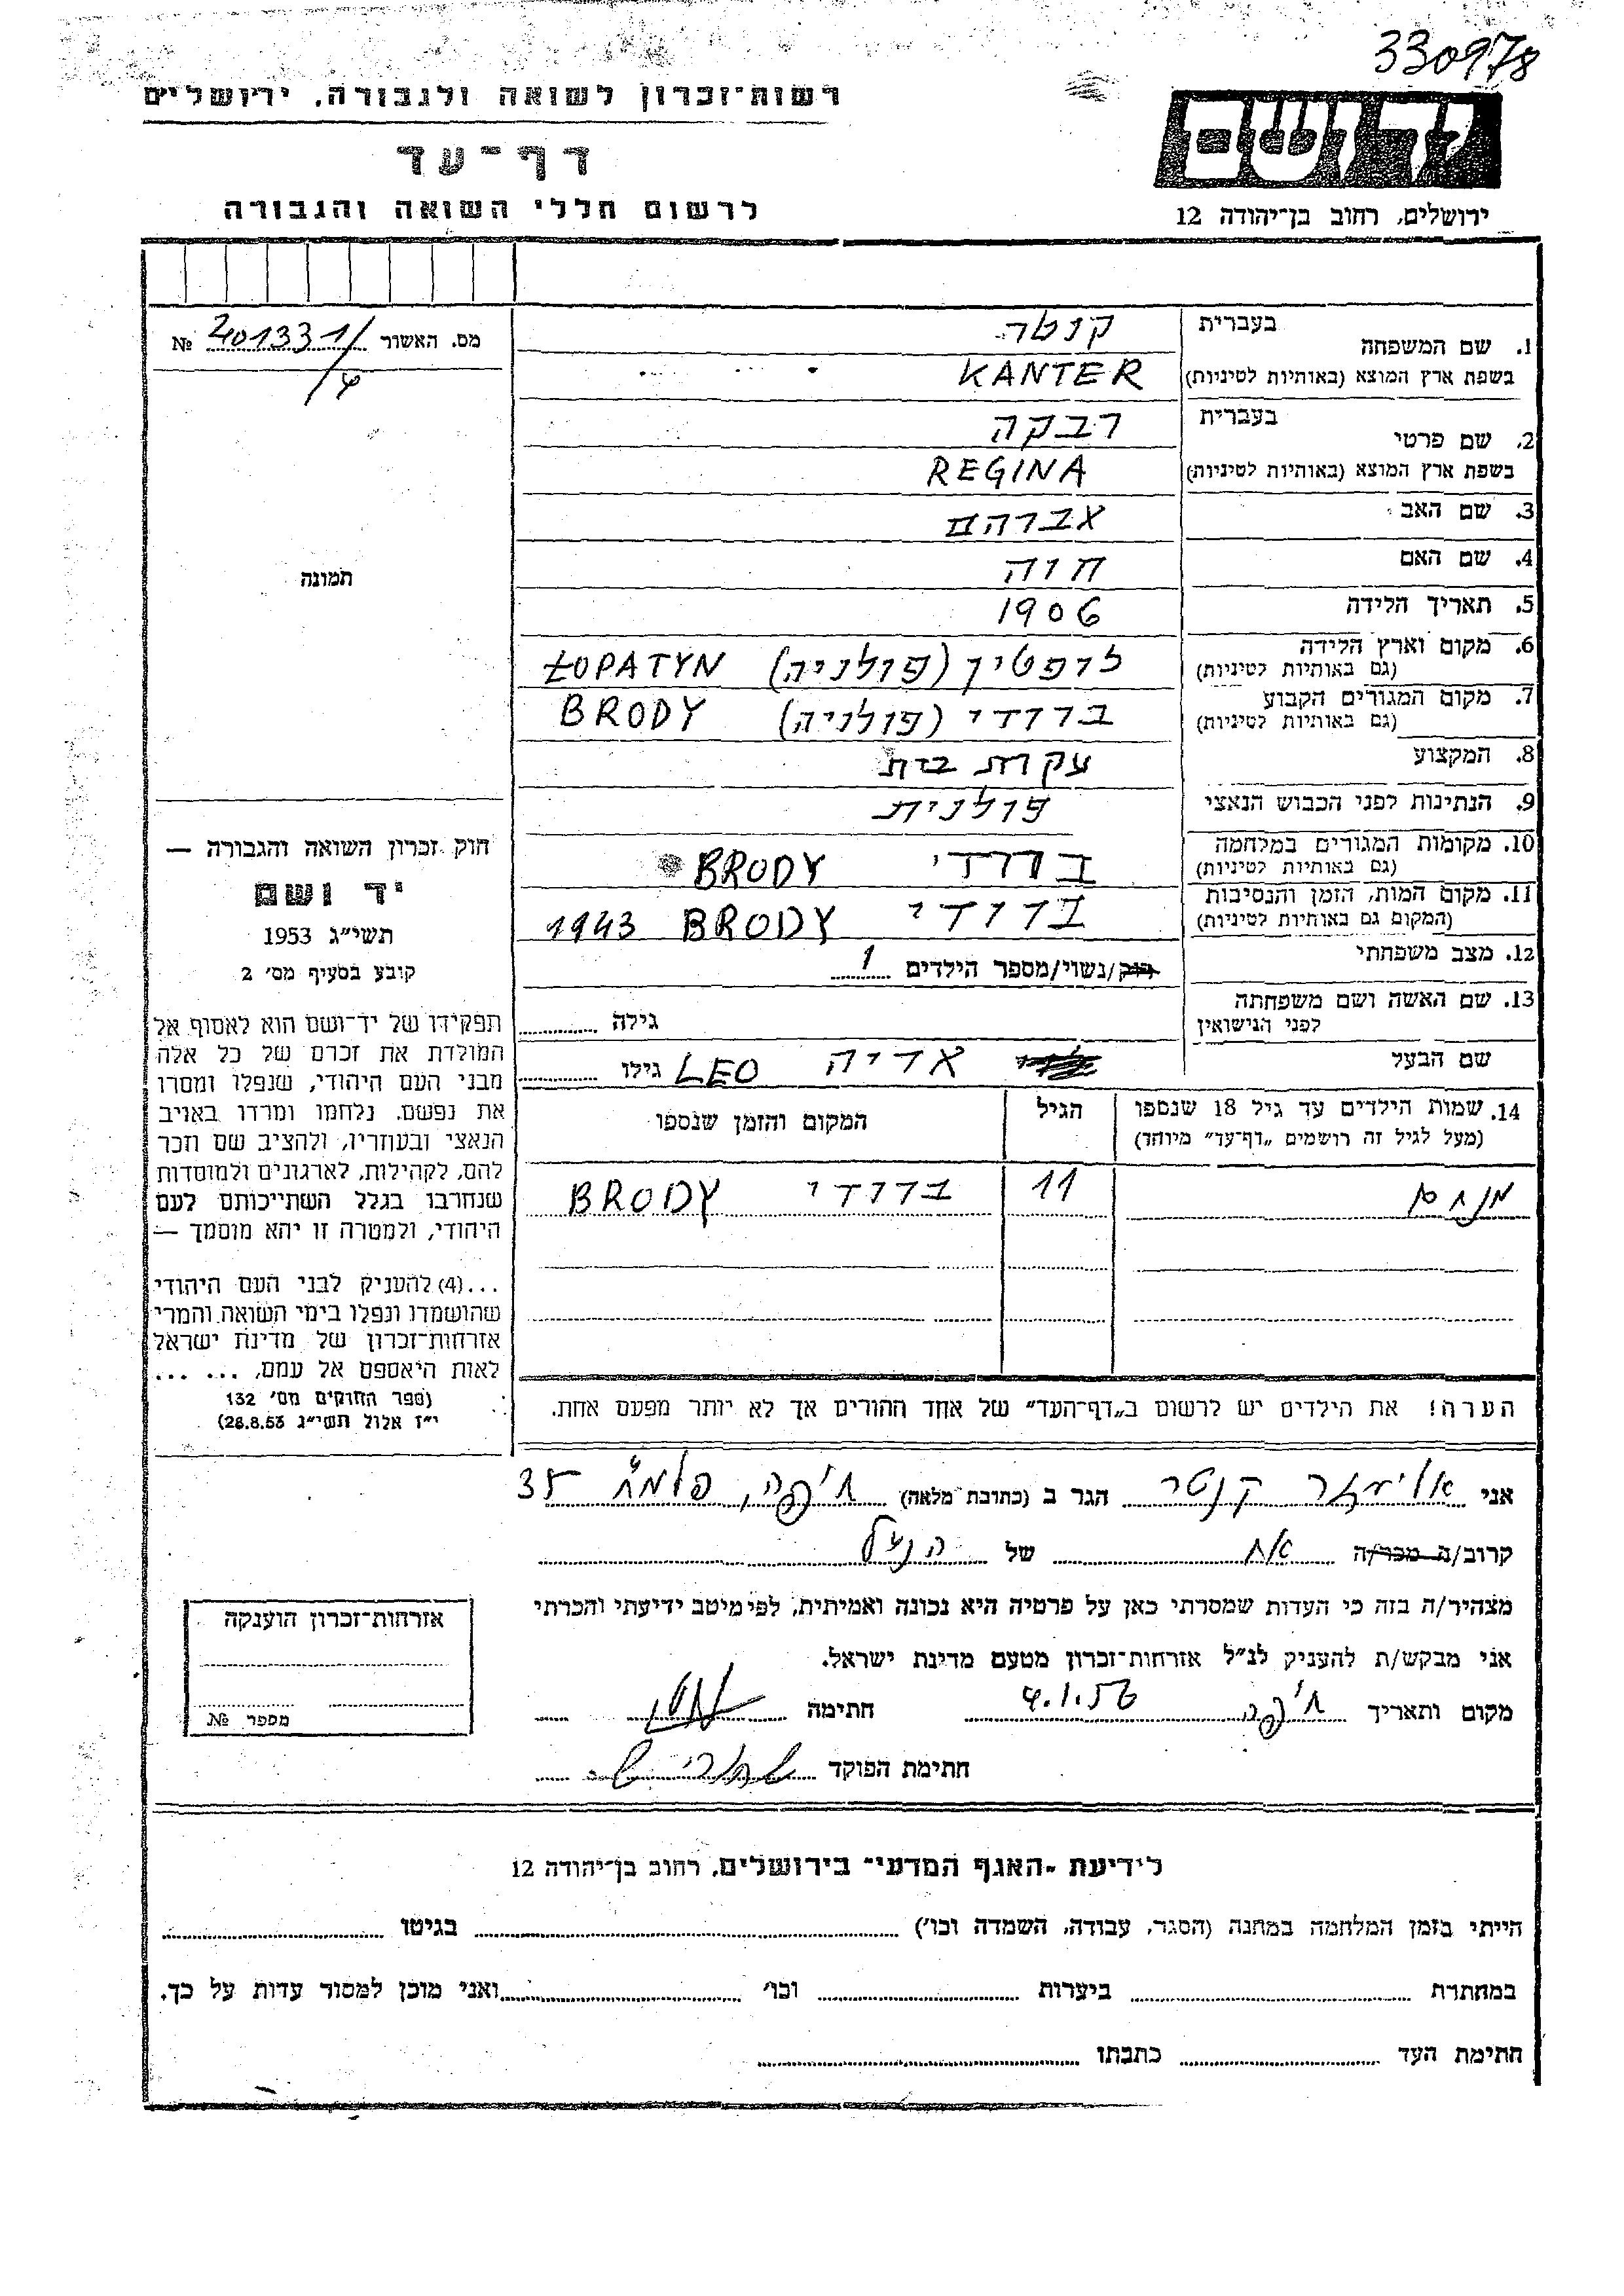 330978
רשות־זכרון לשואה ולגבורה, ירושלים
דף־עד
לרשום חללי השואה והגבורה
ירושלים, רחוב בן־יהודה 12
מס. האשור 201331/ №
1. שם המשפחה
בעברית
קנטר
בשפת ארץ המוצא (באותיות לטיניות)
KANTER
2. שם פרטי
בעברית
רבקה
בשפת ארץ המוצא (באותיות לטיניות)
REGINA
3. שם האב
אברהם
4. שם האם
חוה
5. תאריך הלידה
1906
6. מקום וארץ הלידה
(גם באותיות לטיניות)
לופטין (פולניה) ŁOPATYN
7. מקום המגורים הקבוע
(גם באותיות לטיניות)
ברודי (פולניה) BRODY
8. המקצוע
עקרת בית
9. הנתינות לפני הכבוש הנאצי
פולנית
10. מקומות המגורים במלחמה
(גם באותיות לטיניות)
ברודי BRODY
11. מקום המות, הזמן והנסיבות
(המקום גם באותיות לטיניות)
ברודי BRODY 1943
12. מצב משפחתי
רוק/נשוי/מספר הילדים 1
13. שם האשה ושם משפחתה
לפני הנישואין
גילה
שם הבעל
אריה LEO גילו
14. שמות הילדים עד גיל 18 שנספו
(מעל לגיל זה רושמים „דף־עד” מיוחד)
הגיל
המקום והזמן שנספו
מנחם 11 ברודי BRODY
הערה! את הילדים יש לרשום ב„דף־העד” של אחד ההורים אך לא יותר מפעם אחת.
תמונה
חוק זכרון השואה והגבורה —
יד ושם
תשי״ג 1953
קובע בסעיף מס׳ 2
תפקידו של יד־ושם הוא לאסוף אל
המולדת את זכרם של כל אלה
מבני העם היהודי, שנפלו ומסרו
את נפשם, נלחמו ומרדו באויב
הנאצי ובעוזריו, ולהציב שם וזכר
להם, לקהילות, לארגונים ולמוסדות
שנחרבו בגלל השתייכותם לעם
היהודי, ולמטרה זו יהא מוסמך —
...(4) להעניק לבני העם היהודי
שהושמדו ונפלו בימי השואה והמרי
אזרחות־זכרון של מדינת ישראל
לאות היאספם אל עמם, ... ...
(ספר החוקים מס׳ 132
י״ז אלול תשי״ג 28.8.53)
אני אליעזר קנטר הגר ב (כתובת מלאה) חיפה, פלמ״ח 35
קרוב/ה מכר/ה אח של הנ״ל
מצהיר/ה בזה כי העדות שמסרתי כאן על פרטיה היא נכונה ואמיתית, לפי מיטב ידיעתי והכרתי
אני מבקש/ת להעניק לנ״ל אזרחות־זכרון מטעם מדינת ישראל.
מקום ותאריך חיפה 4.1.56 חתימה
חתימת הפוקד
אזרחות־זכרון הוענקה
מספר №
לידיעת „האגף המדעי” בירושלים, רחוב בן־יהודה 12
הייתי בזמן המלחמה במחנה (הסגר, עבודה, השמדה וכו׳) בגיטו
במחתרת ביערות וכו׳ ואני מוכן למסור עדות על כך.
חתימת העד כתבתו